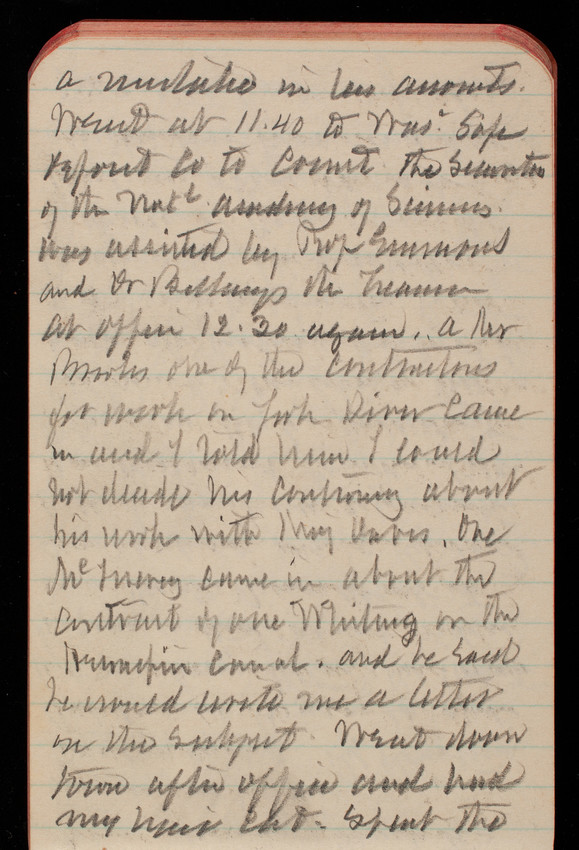 a mistake in his accounts.
Went at 11.40 to Was. Safe
Deposit Co to Count the Securities
of the Natl. academy of Sciences.
was assisted by Prof Emmons
and Dr Billings the Treasurer
at office 12.30 again. a Mr
Brooks one of the contractors
for work on York River Came
in and I told him I could
not decide his controversy about
his work with Maj Davis. One
came in about the
contract of one Whiting on the
Hennepin canal. and he said
he would write me a letter
on the subject. Went down
town after office and had
my hair cut. Spent the